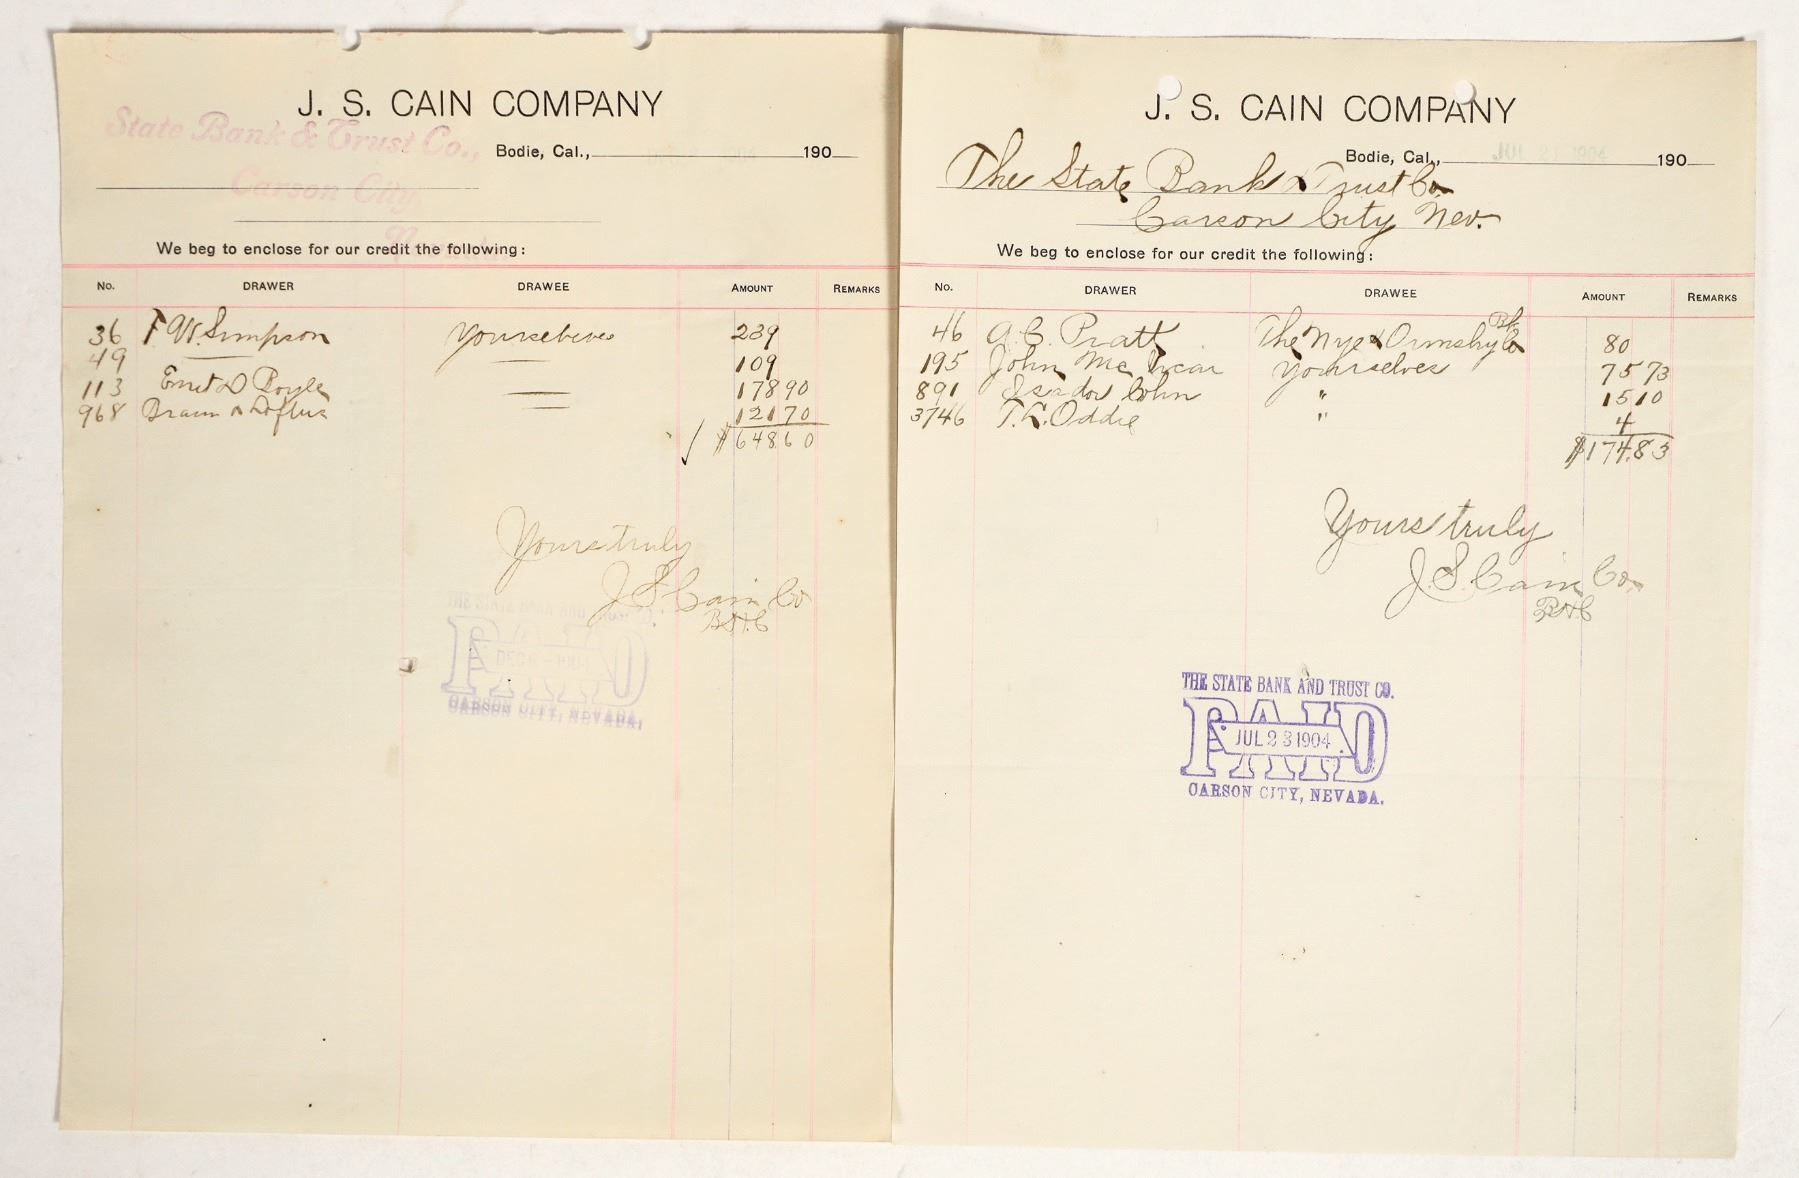 J. S. CAIN COMPANY
State Bank & Trust Co.,
Bodie, Cal., DEC 1904 190
Carson City,
Nevada.
We beg to enclose for our credit the following:
No. DRAWER DRAWEE AMOUNT REMARKS
36 F W. Simpson Yourselves 239
49 109
113 Ernst D Boyle 178 90
968 Braun & Loftus 121 70
$648.60
Yours truly
J.S. Cain Co
B.H.C
THE STATE BANK AND TRUST CO.
PAID
DEC 1904
CARSON CITY, NEVADA.
J. S. CAIN COMPANY
Bodie, Cal., JUL 21 1904 190
The State Bank & Trust Co
Carson City Nev.
We beg to enclose for our credit the following:
No. DRAWER DRAWEE AMOUNT REMARKS
46 A. C. Pratt The Nye & Ormsby Co Bk 80
195 John McVicar Yourselves 75 73
891 Isador Cohn " 15 10
3746 T. L. Oddie " 4
$174.83
Yours truly
J.S. Cain Co.
BHC
THE STATE BANK AND TRUST CO.
PAID
JUL 23 1904
CARSON CITY, NEVADA.